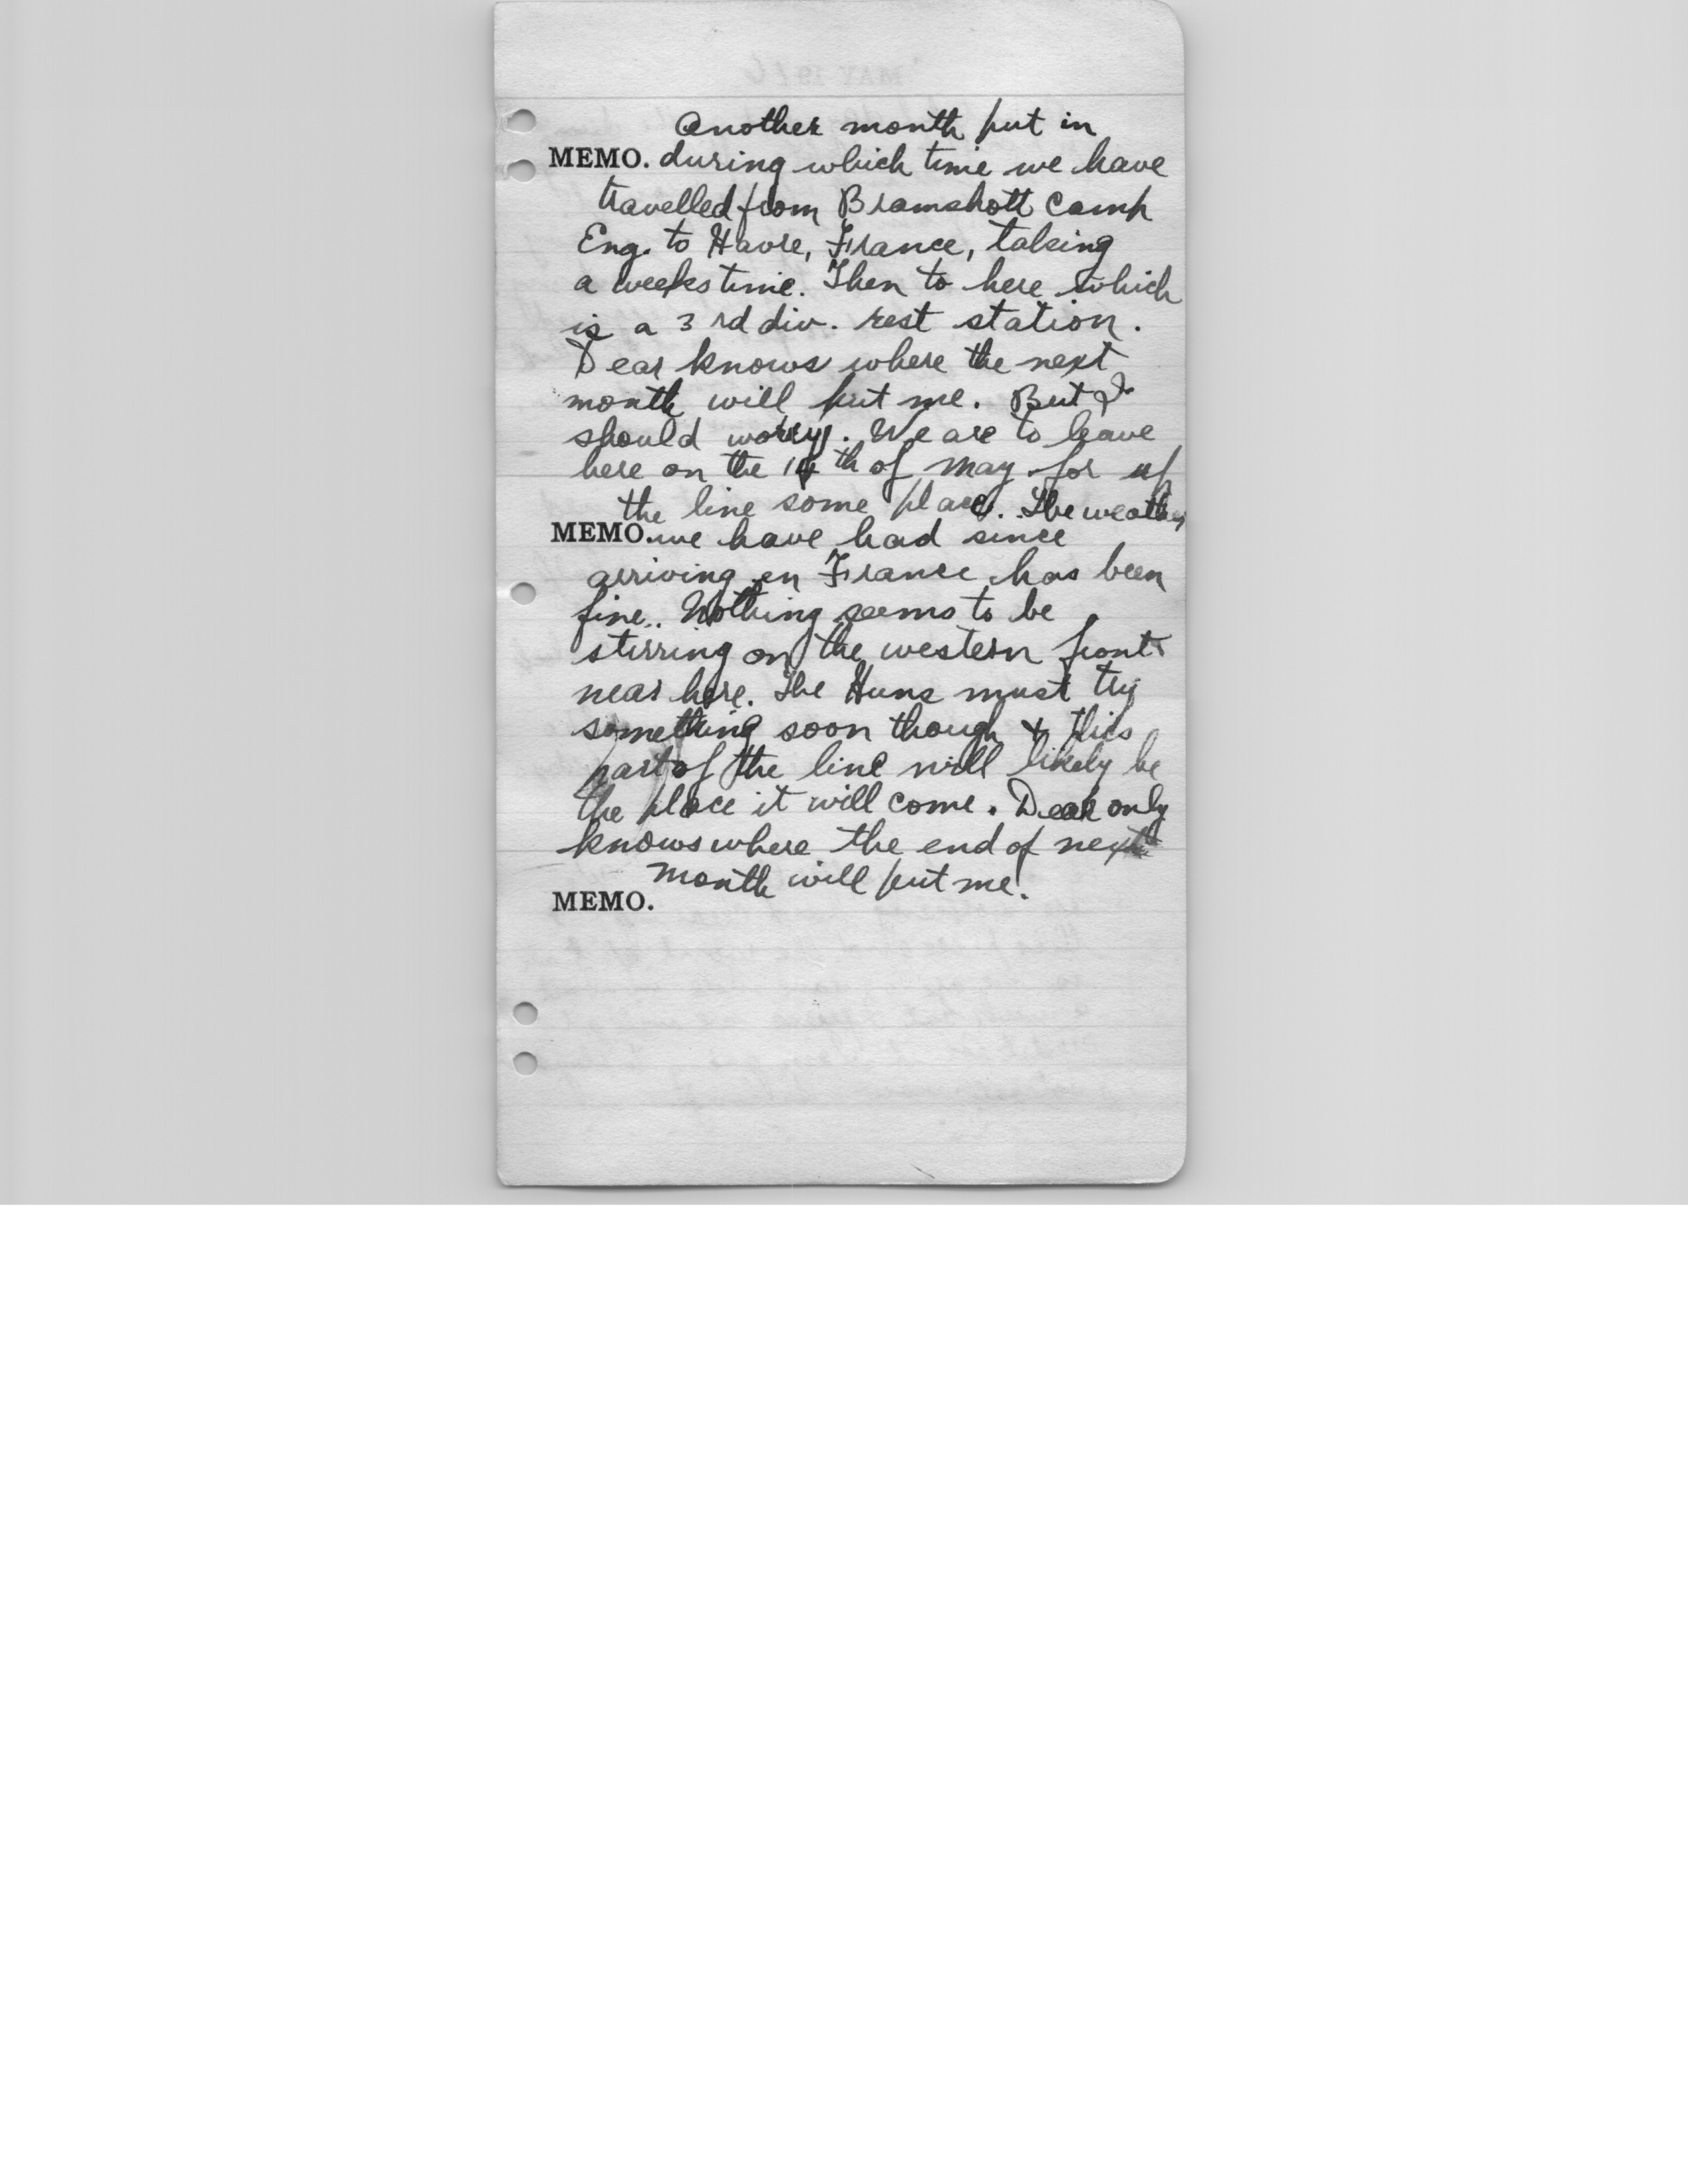 Another month put in
MEMO. during which time we have
travelled from Bramshott Camp
Eng. to Havre, France, taking
a weeks time. Then to here which
is a 3rd div. rest station.
Dear knows where the next
month will put me. But I
should worry. We are to leave
here on the th of May for up
the line some place. The weather
MEMO. we have had since
arriving in France has been
fine. Nothing seems to be
stirring on the western front
near here. The Huns must try
something soon though & this
part of the line will likely be
the place it will come. Dear only
knows where the end of next
month will put me!
MEMO.